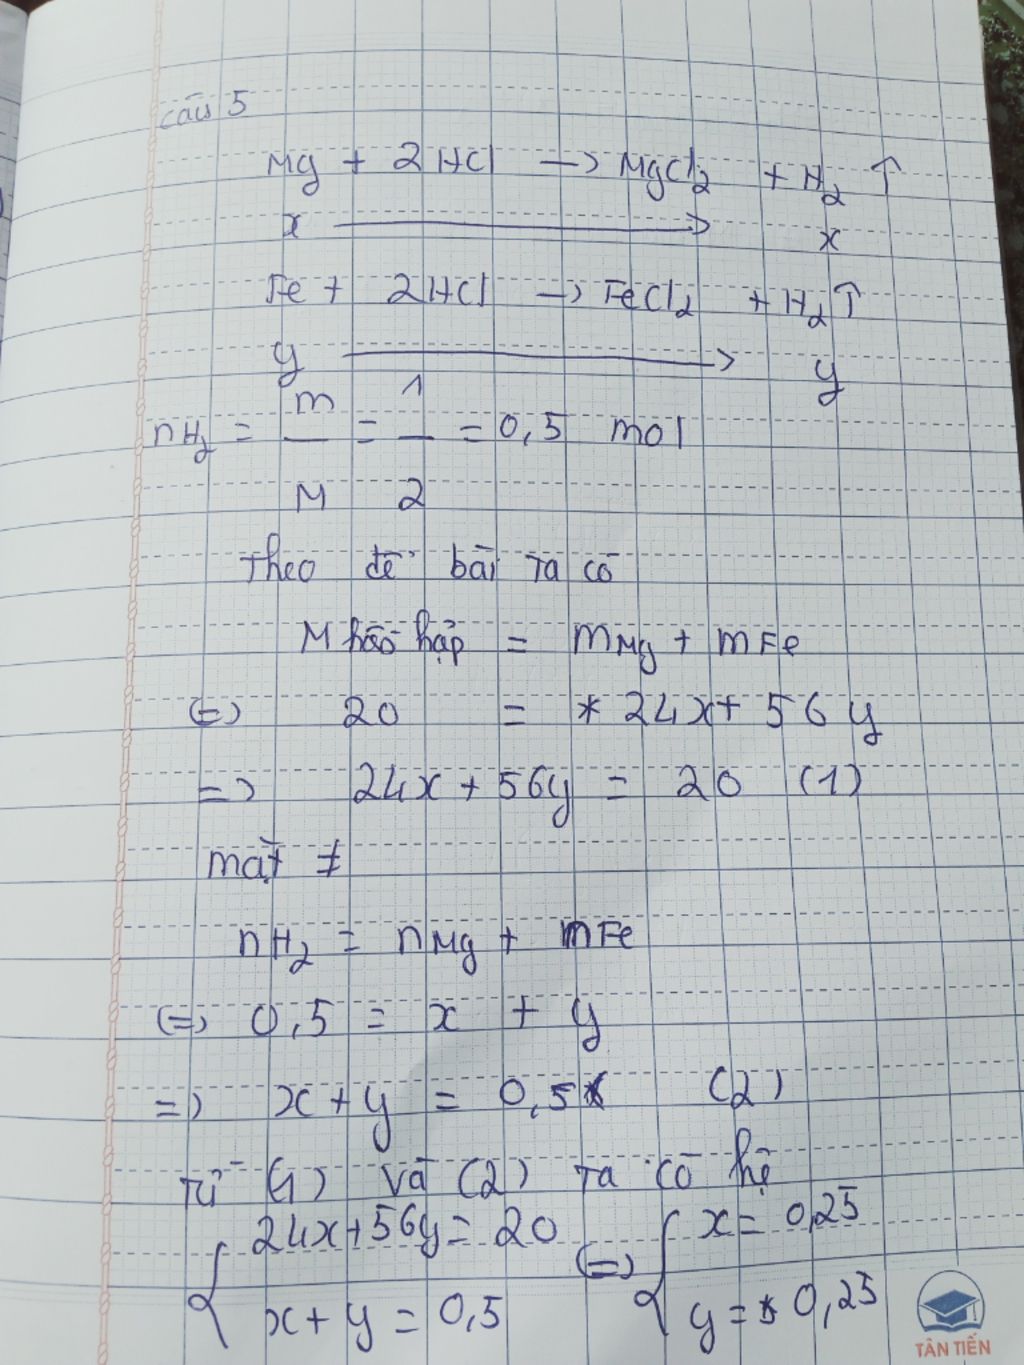 câu 5
Mg + 2HCl → MgCl2 + H2 ↑
x → x
Fe + 2HCl → FeCl2 + H2 ↑
y → y
nH2 = m/M = 1/2 = 0,5 mol
Theo đề bài ta có
M hỗn hợp = mMg + mFe
(=) 20 = * 24x + 56y
=> 24x + 56y = 20 (1)
mặt ≠
nH2 = nMg + mFe
(=) 0,5 = x + y
=> x + y = 0,5 (2)
Từ (1) và (2) ta có hệ
{ 24x + 56y = 20 (=) { x = 0,25
x + y = 0,5 y = 0,25
TÂN TIẾN